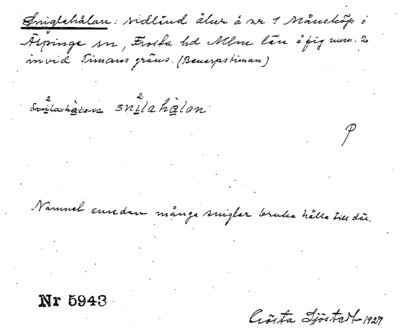 Sniglahålan: sidländ åker å nr 1 Månstorp i
Äspinge sn, Frosta hd Mlm län å fig num. 2
invid Timans gräns. (Benarpstiman)
snilahålan snilahålan
2 2
P
Namnet emedan många sniglar bruka hålla till där.
Nr 5943
Gösta Sjöstedt 1927